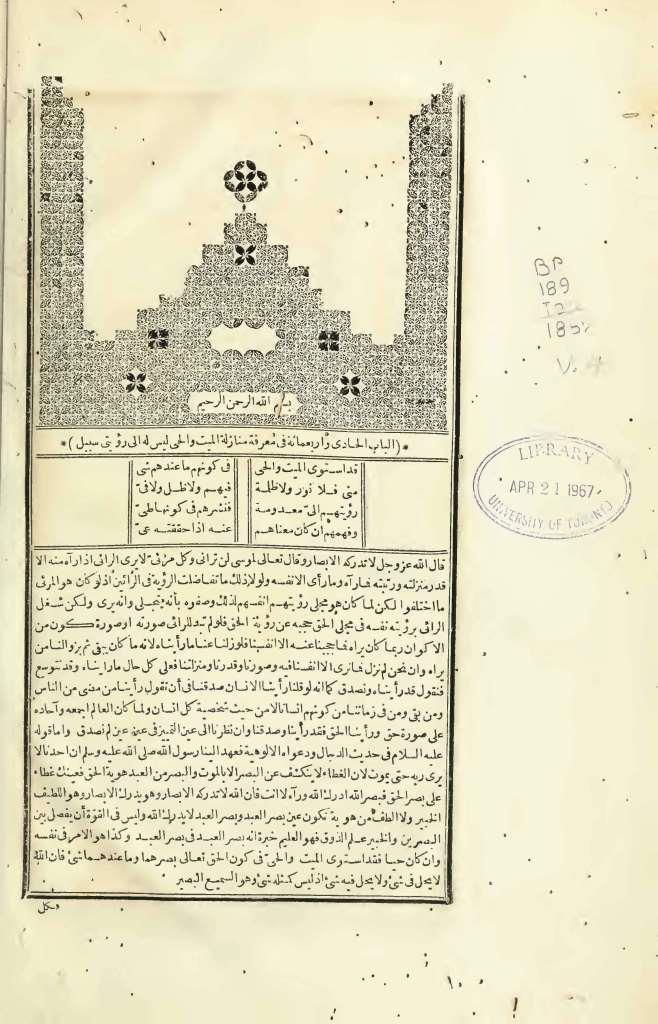 بسم الله الرحمن الرحيم
* (الباب الحادى وأربعمائة فى معرفة منازلة الميت والحى ليس له الى رؤيتى سبيل) *
قد استوى الميت والحى فى كونهم ما عندهم شى
منى فلا نور ولا ظلمة فيهم ولا ظل ولا فى
رؤيتهم الى معدومة فنشرهم فى كونها طى
وفهمهم ان كان معناهم عنه اذا حققته عى
قال الله عز وجل لا تدركه الابصار وقال تعالى لموسى لن ترانى وكل مرئى لا يرى الرائى اذا رآه منه الا
قدر منزلته ورتبته فما رآه وما رأى الا نفسه ولولا ذلك ما تفاضلت الرؤية فى الرائين اذ لو كان هو المرئى
ما اختلفوا لكن لما كان هو مجلى رؤيتهم انفسهم لذلك وصفوه بأنه يتجلى وأنه يرى ولكن شغل
الرائى برؤيته نفسه فى مجلى الحق حجبه عن رؤية الحق فلو لم تبد للرائى صورته او صورة كون من
الاكوان ربما كان يراه فما حجبنا عنه الا انفسنا فلو زلنا عنا ما رأيناه لانه ما كان يبقى ثم بزوالنا من
يراه وان نحن لم نزل فما نرى الا انفسنا فيه وصورنا وقدرنا ومنزلتنا فعلى كل حال ما رأيناه وقد نتوسع
فنقول قد رأيناه ونصدق كما انه لو قلنا رأينا الانسان صدقنا فى أن نقول رأينا من مضى من الناس
ومن بقى ومن فى زماننا من كونهم انسانا لا من حيث شخصية كل انسان ولما كان العالم اجمعه وآحاده
على صورة حق ورأينا الحق فقد رأينا وصدقنا وان نظرنا الى عين التمييز فى عين عين لم نصدق واما قوله
عليه السلام فى حديث الدجال ودعواه الالوهية فعهد الينا رسول الله صلى الله عليه وسلم ان احدنا لا
يرى ربه حتى يموت لان الغطاء لا ينكشف عن البصر الا بالموت والبصر من العبد هوية الحق فعينك غطاء
على بصر الحق فبصر الله ادرك الله ورآه لا انت فان الله لا تدركه الابصار وهو يدرك الابصار وهو اللطيف
الخبير ولا الطف من هوية تكون عين بصر العبد وبصر العبد لا يدرك الله وليس فى القوة أن يفصل بين
البصرين والخبير علم الذوق فهو العليم خبرة انه بصر العبد فى بصر العبد وكذا هو الامر فى نفسه
وان كان حيا فقد استوى الميت والحى فى كون الحق تعالى بصرهما وما عندهما شئ فان الله
لا يحل فى شئ ولا يحل فيه شئ اذ ليس كمثله شئ وهو السميع البصير
وكل
BP
189
185
V. 4
LIBRARY
APR 21 1967
UNIVERSITY OF TORONTO